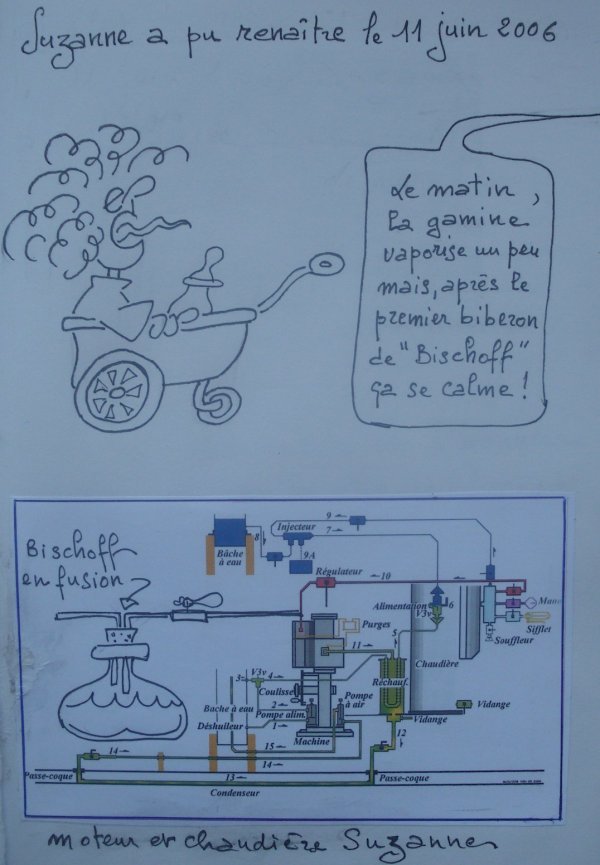 Suzanne a pu renaître le 11 juin 2006
Le matin,
la gamine
vaporise un peu
mais, après le
premier biberon
de "Bischoff"
ça se calme !
Bischoff
en fusion
9
Injecteur
7
8
9A
Bâche
à eau
Régulateur
10
Alimentation
V3v
6
Mano
Sifflet
Souffleur
Purges
5
11
Chaudière
Réchauf.
3
V3v
4
Coulisse
Pompe
à air
2
Bache à eau
Pompe alim.
1
Déshuileur
Machine
Vidange
Vidange
12
15
14
14
Passe-coque
13
Passe-coque
Condenseur
moteur et chaudière Suzanne